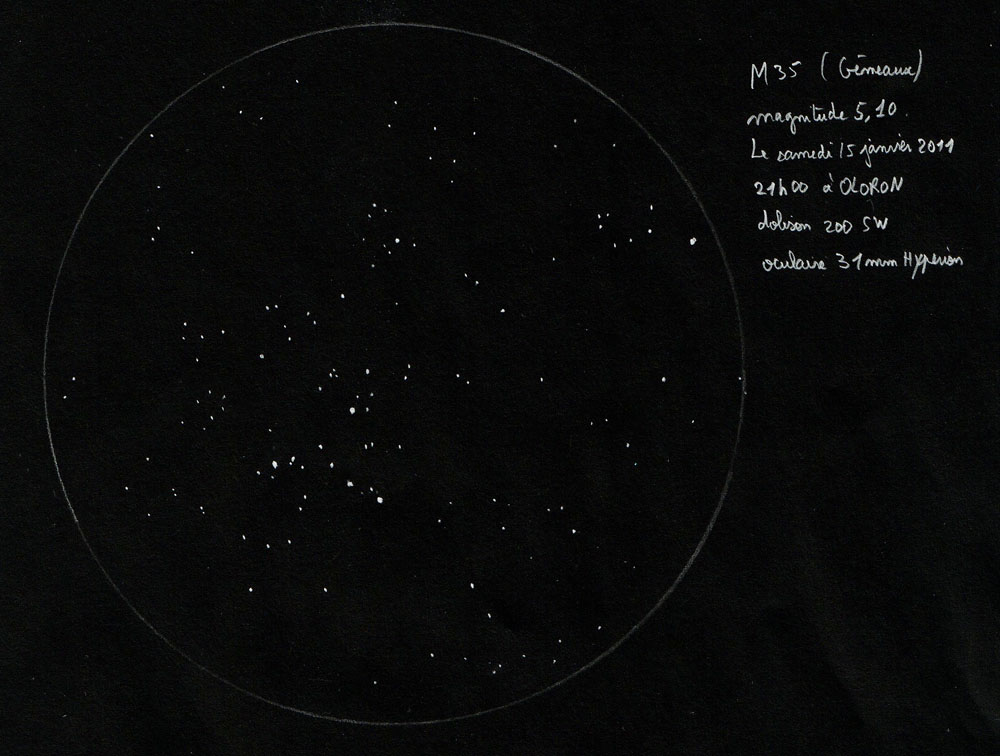 M35 (Gémeaux)
magnitude 5,10.
Le samedi 15 janvier 2011
21h00 à OLORON
dobson 200 SW
oculaire 31mm Hyperion